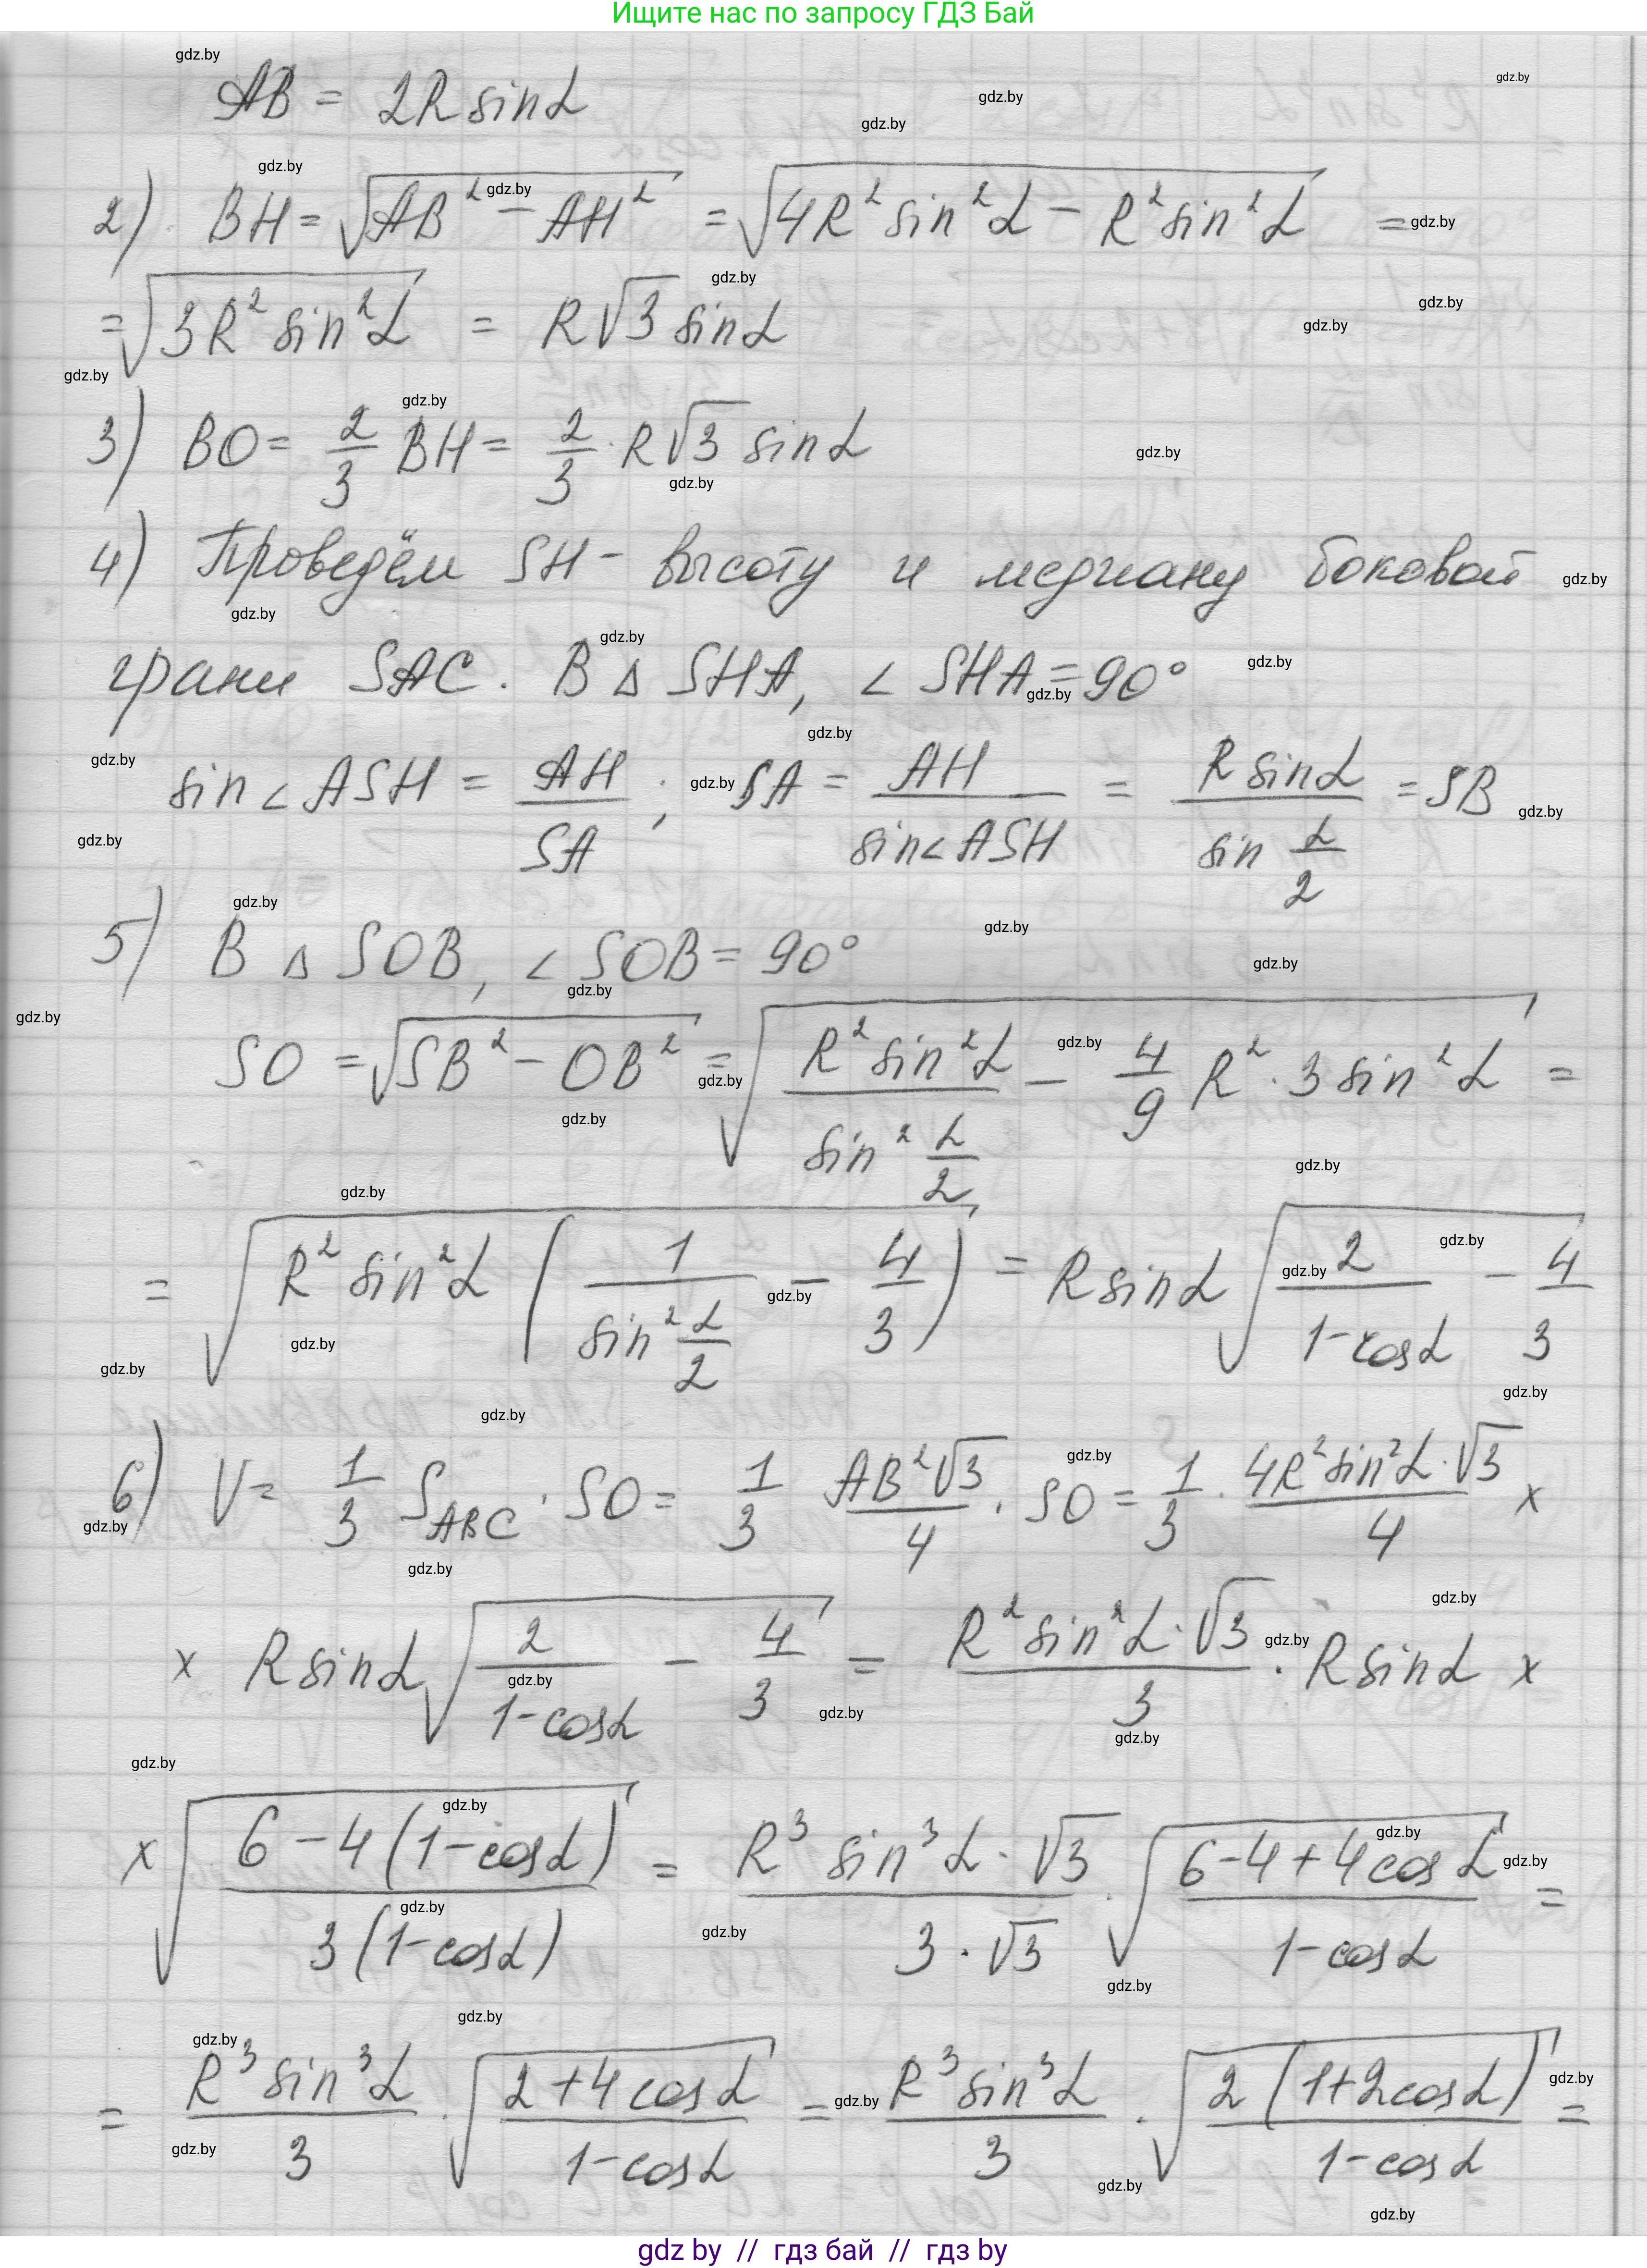 Ищите нас по запросу ГДЗ Бай
AB = 2R sinα
2) BH = √(AB² − AH²) = √(4R² sin²α − R² sin²α) =
= √(3R² sin²α) = R√3 sinα
3) BO = 2/3 BH = 2/3 · R√3 sinα
4) Проведём SH - высоту и медиану боковой
грани SAC. В Δ SHA, ∠ SHA = 90°
sin∠ASH = AH/SA ; SA = AH/sin∠ASH = R sinα / sin α/2 = SB
5) В Δ SOB, ∠ SOB = 90°
SO = √(SB² − OB²) = √(R² sin²α / sin² α/2 − 4/9 R² · 3 sin²α) =
= √(R² sin²α (1/sin² α/2 − 4/3)) = R sinα √(2/(1-cosα) − 4/3)
6) V = 1/3 S_ABC · SO = 1/3 AB²√3/4 · SO = 1/3 · 4R² sin²α · √3 / 4 ×
× R sinα √(2/(1-cosα) − 4/3) = R² sin²α · √3 / 3 · R sinα ×
× √((6 − 4(1-cosα)) / (3(1-cosα))) = R³ sin³α · √3 / (3 · √3) · √((6-4+4cosα)/(1-cosα)) =
= R³ sin³α / 3 · √((2+4cosα)/(1-cosα)) = R³ sin³α / 3 · √(2(1+2cosα)/(1-cosα)) =
gdz by // гдз бай // гдз by